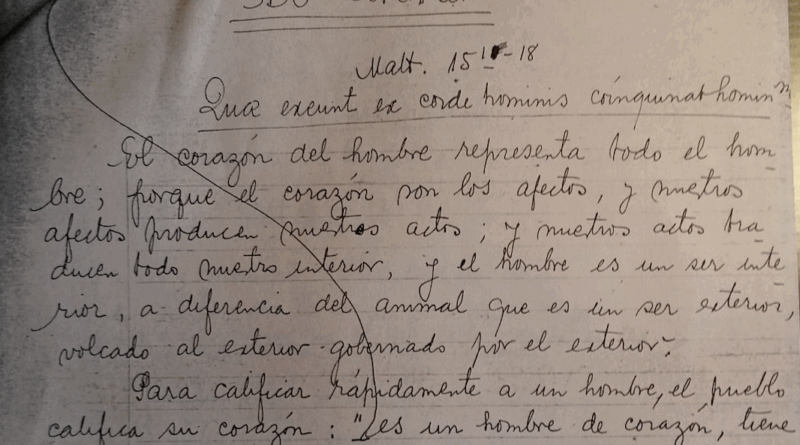 Matt. 15 11-18
Quæ exeunt ex corde hominis coinquinat homin
El corazón del hombre representa todo el hom-
bre; porque el corazón son los afectos, y nuestros
afectos producen nuestros actos; y nuestros actos tra-
ducen todo nuestro interior, y el hombre es un ser inte
rior, a diferencia del animal que es un ser exterior,
volcado al exterior gobernado por el exterior.
Para calificar rápidamente a un hombre, el pueblo
califica su corazón: "es un hombre de corazón, tiene